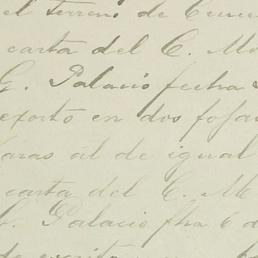 el terreno de
carta del C. M
G. Palacio fecha
exorto en dos fojas
de igual
carta del C. M
G. Palacio fha 6 d